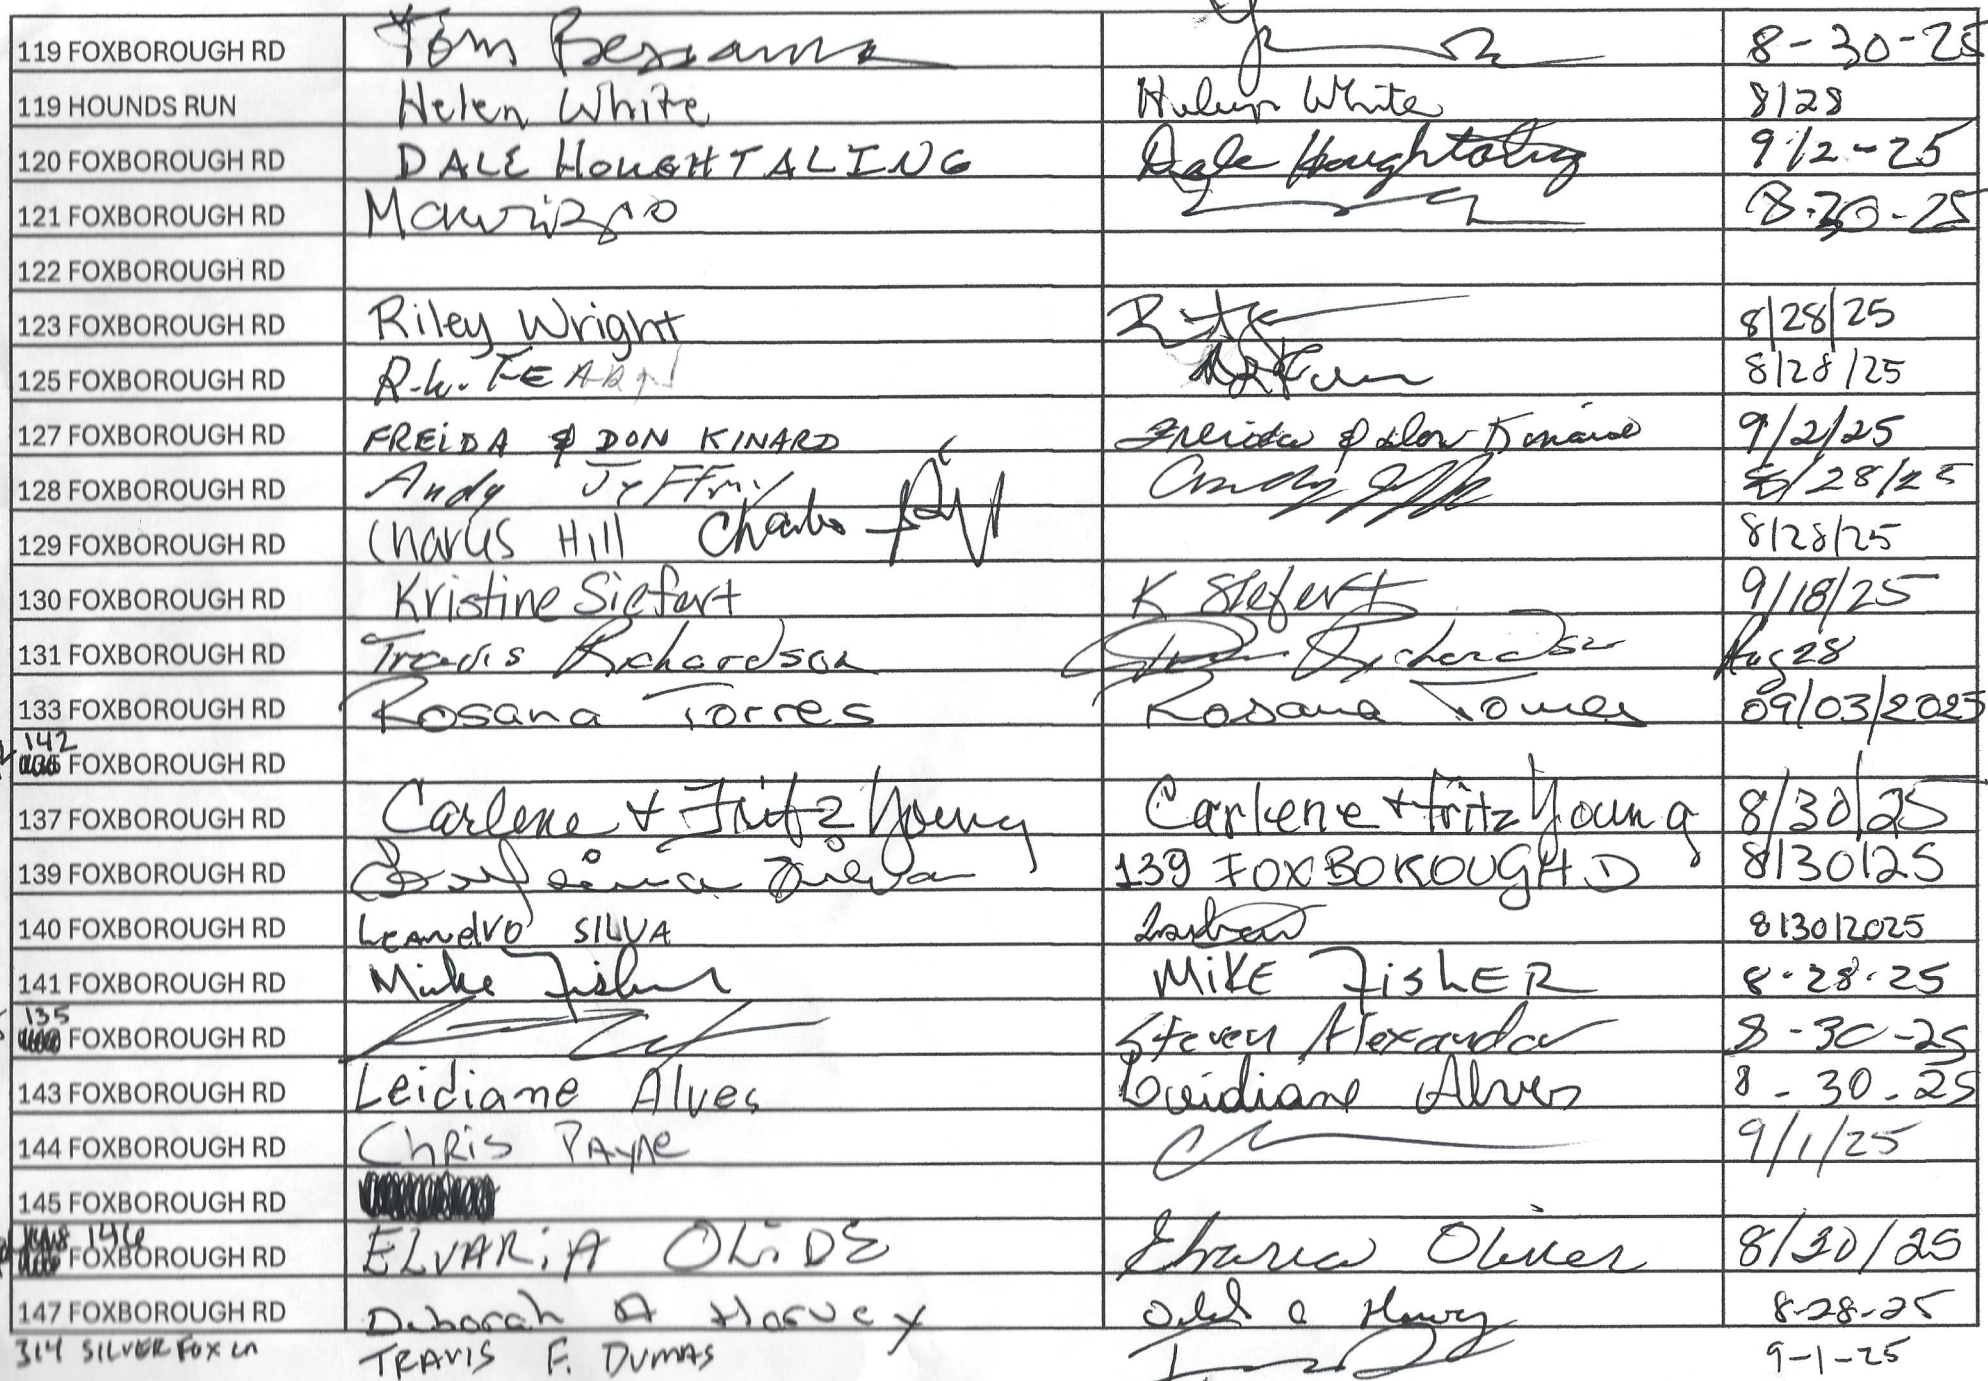 119 FOXBOROUGH RD Tom 8-30-25
119 HOUNDS RUN Helen White Helen White 8/28
120 FOXBOROUGH RD DALE HOUGHTALING Dale Houghtaling 9/2-25
121 FOXBOROUGH RD 8-30-25
122 FOXBOROUGH RD
123 FOXBOROUGH RD Riley Wright 8/28/25
125 FOXBOROUGH RD R.W. FEARN 8/28/25
127 FOXBOROUGH RD FREIDA & DON KINARD Freida & Don Kinard 9/2/25
128 FOXBOROUGH RD Andy Andy 8/28/25
129 FOXBOROUGH RD Charles Hill Charles 8/28/25
130 FOXBOROUGH RD Kristine Siefert K Siefert 9/18/25
131 FOXBOROUGH RD Travis Richardson Richardson Aug 28
133 FOXBOROUGH RD Rosana Torres Rosana Torres 09/03/2025
142
FOXBOROUGH RD
137 FOXBOROUGH RD Carlene + Fritz Young Carlene + Fritz Young 8/30/25
139 FOXBOROUGH RD 139 FOXBOROUGH D 8/30/25
140 FOXBOROUGH RD LEANdRO SILVA 8/30/2025
141 FOXBOROUGH RD Mike Fisher MIKE FISHER 8-28-25
135
FOXBOROUGH RD Steven Alexander 8-30-25
143 FOXBOROUGH RD Leidiane Alves Leidiane Alves 8-30-25
144 FOXBOROUGH RD Chris PAYNE 9/1/25
145 FOXBOROUGH RD
146
FOXBOROUGH RD ELVARiA OLiDE 8/30/25
147 FOXBOROUGH RD Deborah A Harvey 8-28-25
314 SILVER FOX LN TRAVIS F. DUMAS 9-1-25